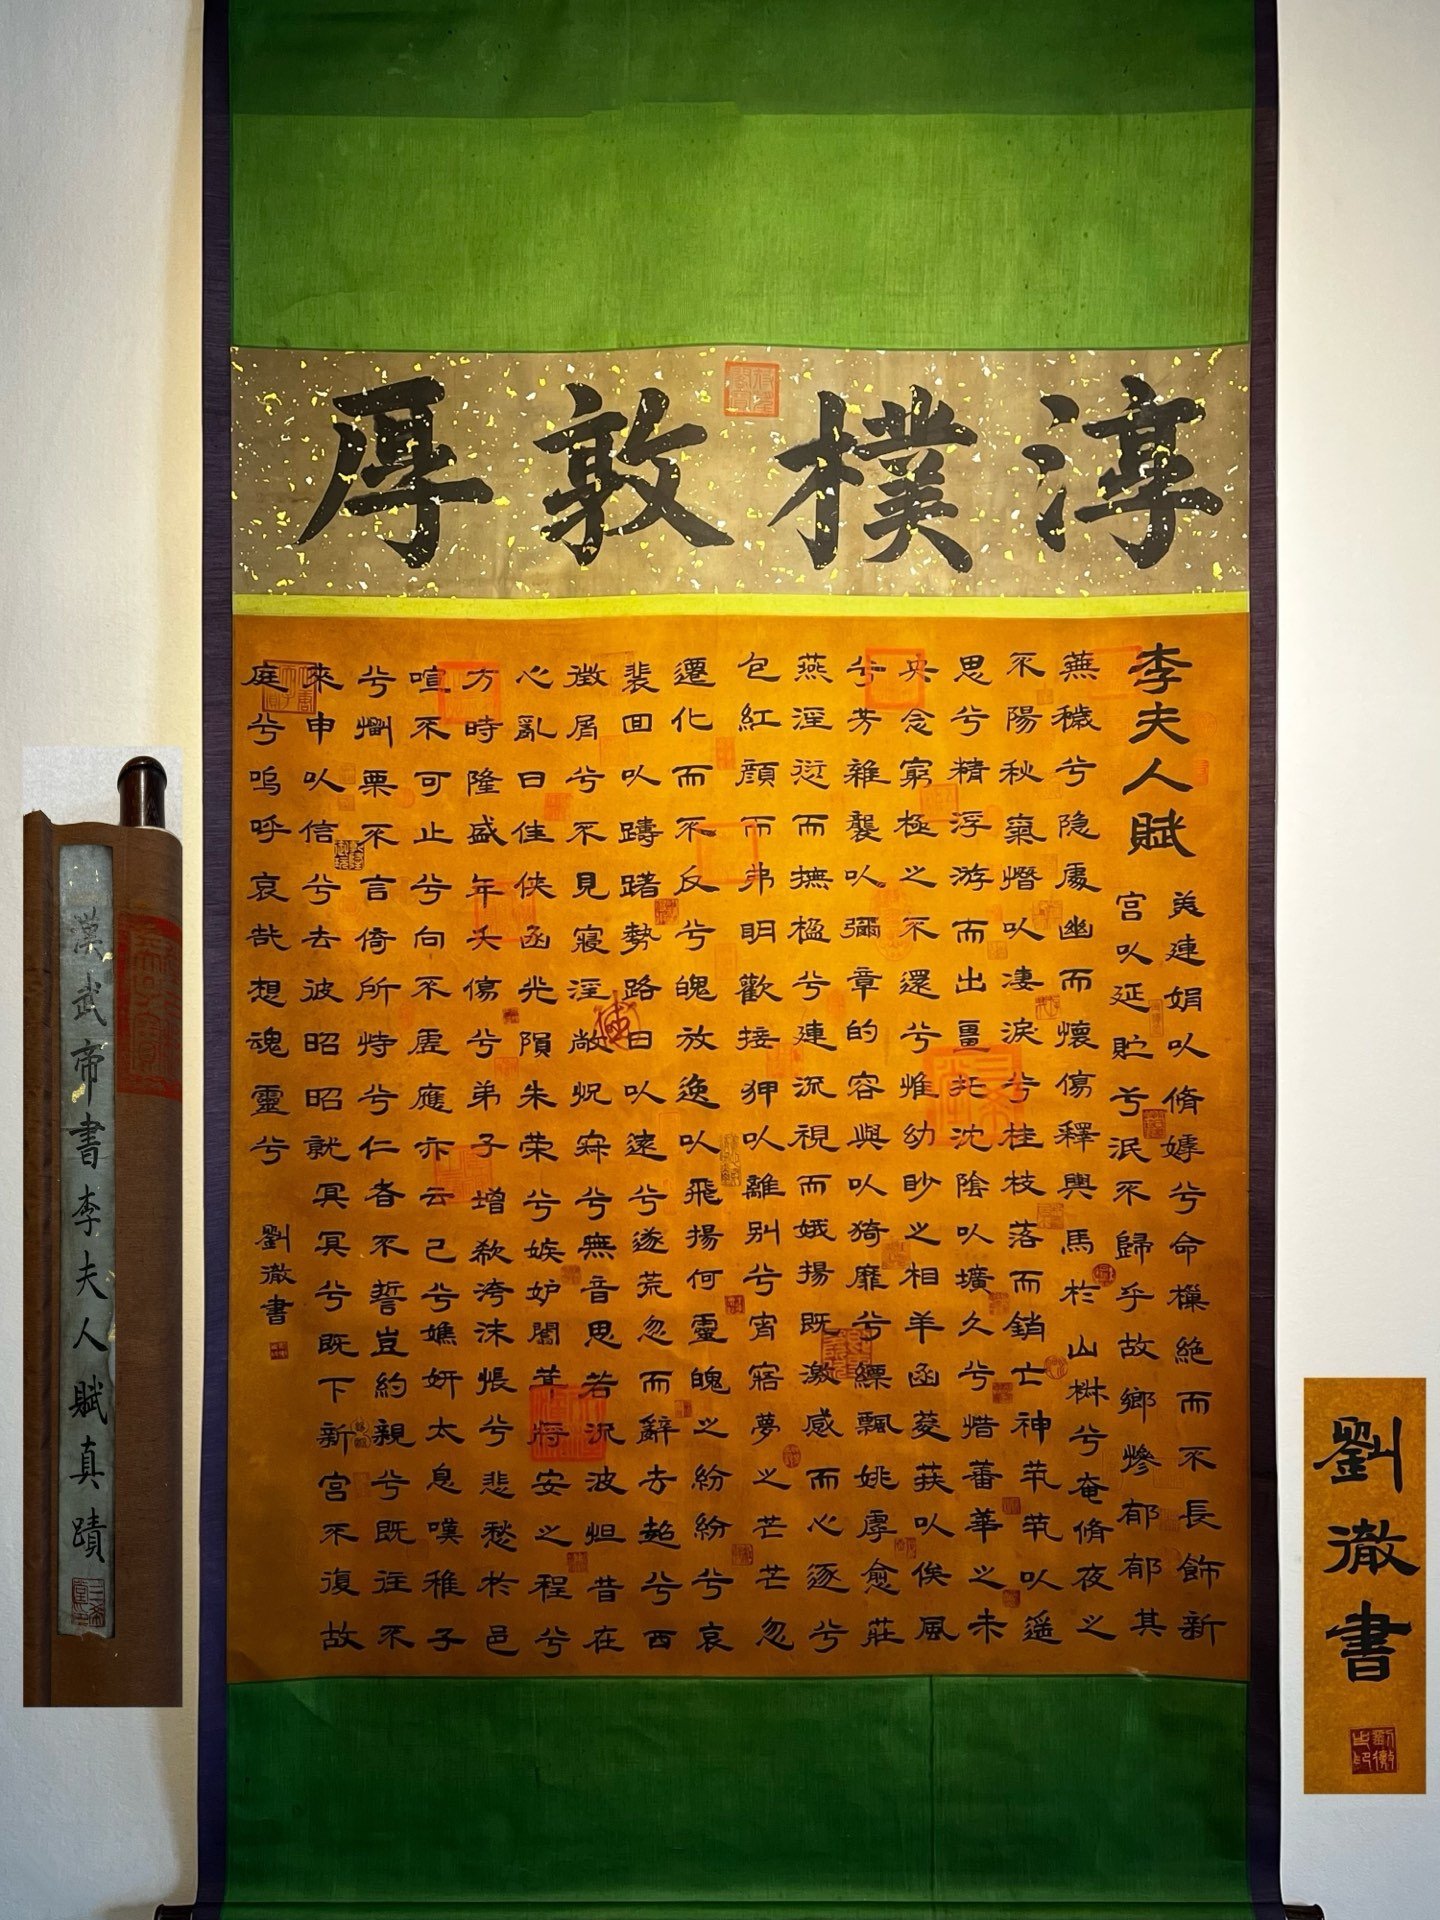 淳樸敦厚
李夫人賦
美連娟以脩嫮兮命樔絕而不長飾新
宮以延貯兮泯不歸乎故鄉慘郁郁其
蕪穢兮隐處幽而懷傷釋輿馬於山椒兮奄脩夜之
不陽秋氣憯以淒淚兮桂枝落而銷亡神茕茕以遥
思兮精浮游而出畺托沈陰以壙久兮惜蕃華之未
央念窮極之不還兮惟幼眇之相羊函菱荴以俟風
兮芳雜襲以彌章的容與以猗靡兮縹飄姚虖愈莊
燕淫愆而撫楹兮連流視而娥揚既激感而心逐兮
包紅顏而弗明歡接狎以離別兮宵寤夢之芒芒忽
遷化而不反兮魄放逸以飛揚何靈魄之紛紛兮哀
裴回以躊躇勢路日以遠兮遂荒忽而辭去超兮西
徵屑兮不見寖淫敞怳寂兮無音思若流波怛昔在
心亂曰佳俠函光隕朱榮兮嫉妒闟茸將安之程兮
方時隆盛年夭傷兮弟子增欷洿沫悵兮悲愁於邑
喧不可止兮向不虛應亦云己兮嫶妍太息嘆稚子
兮懰栗不言倚所恃兮仁者不誓豈約親兮既往不
來申以信兮去彼昭昭就冥冥兮既下新宮不復故
庭兮嗚呼哀哉想魂靈兮
劉徹書
漢武帝書李夫人賦真蹟
劉徹書